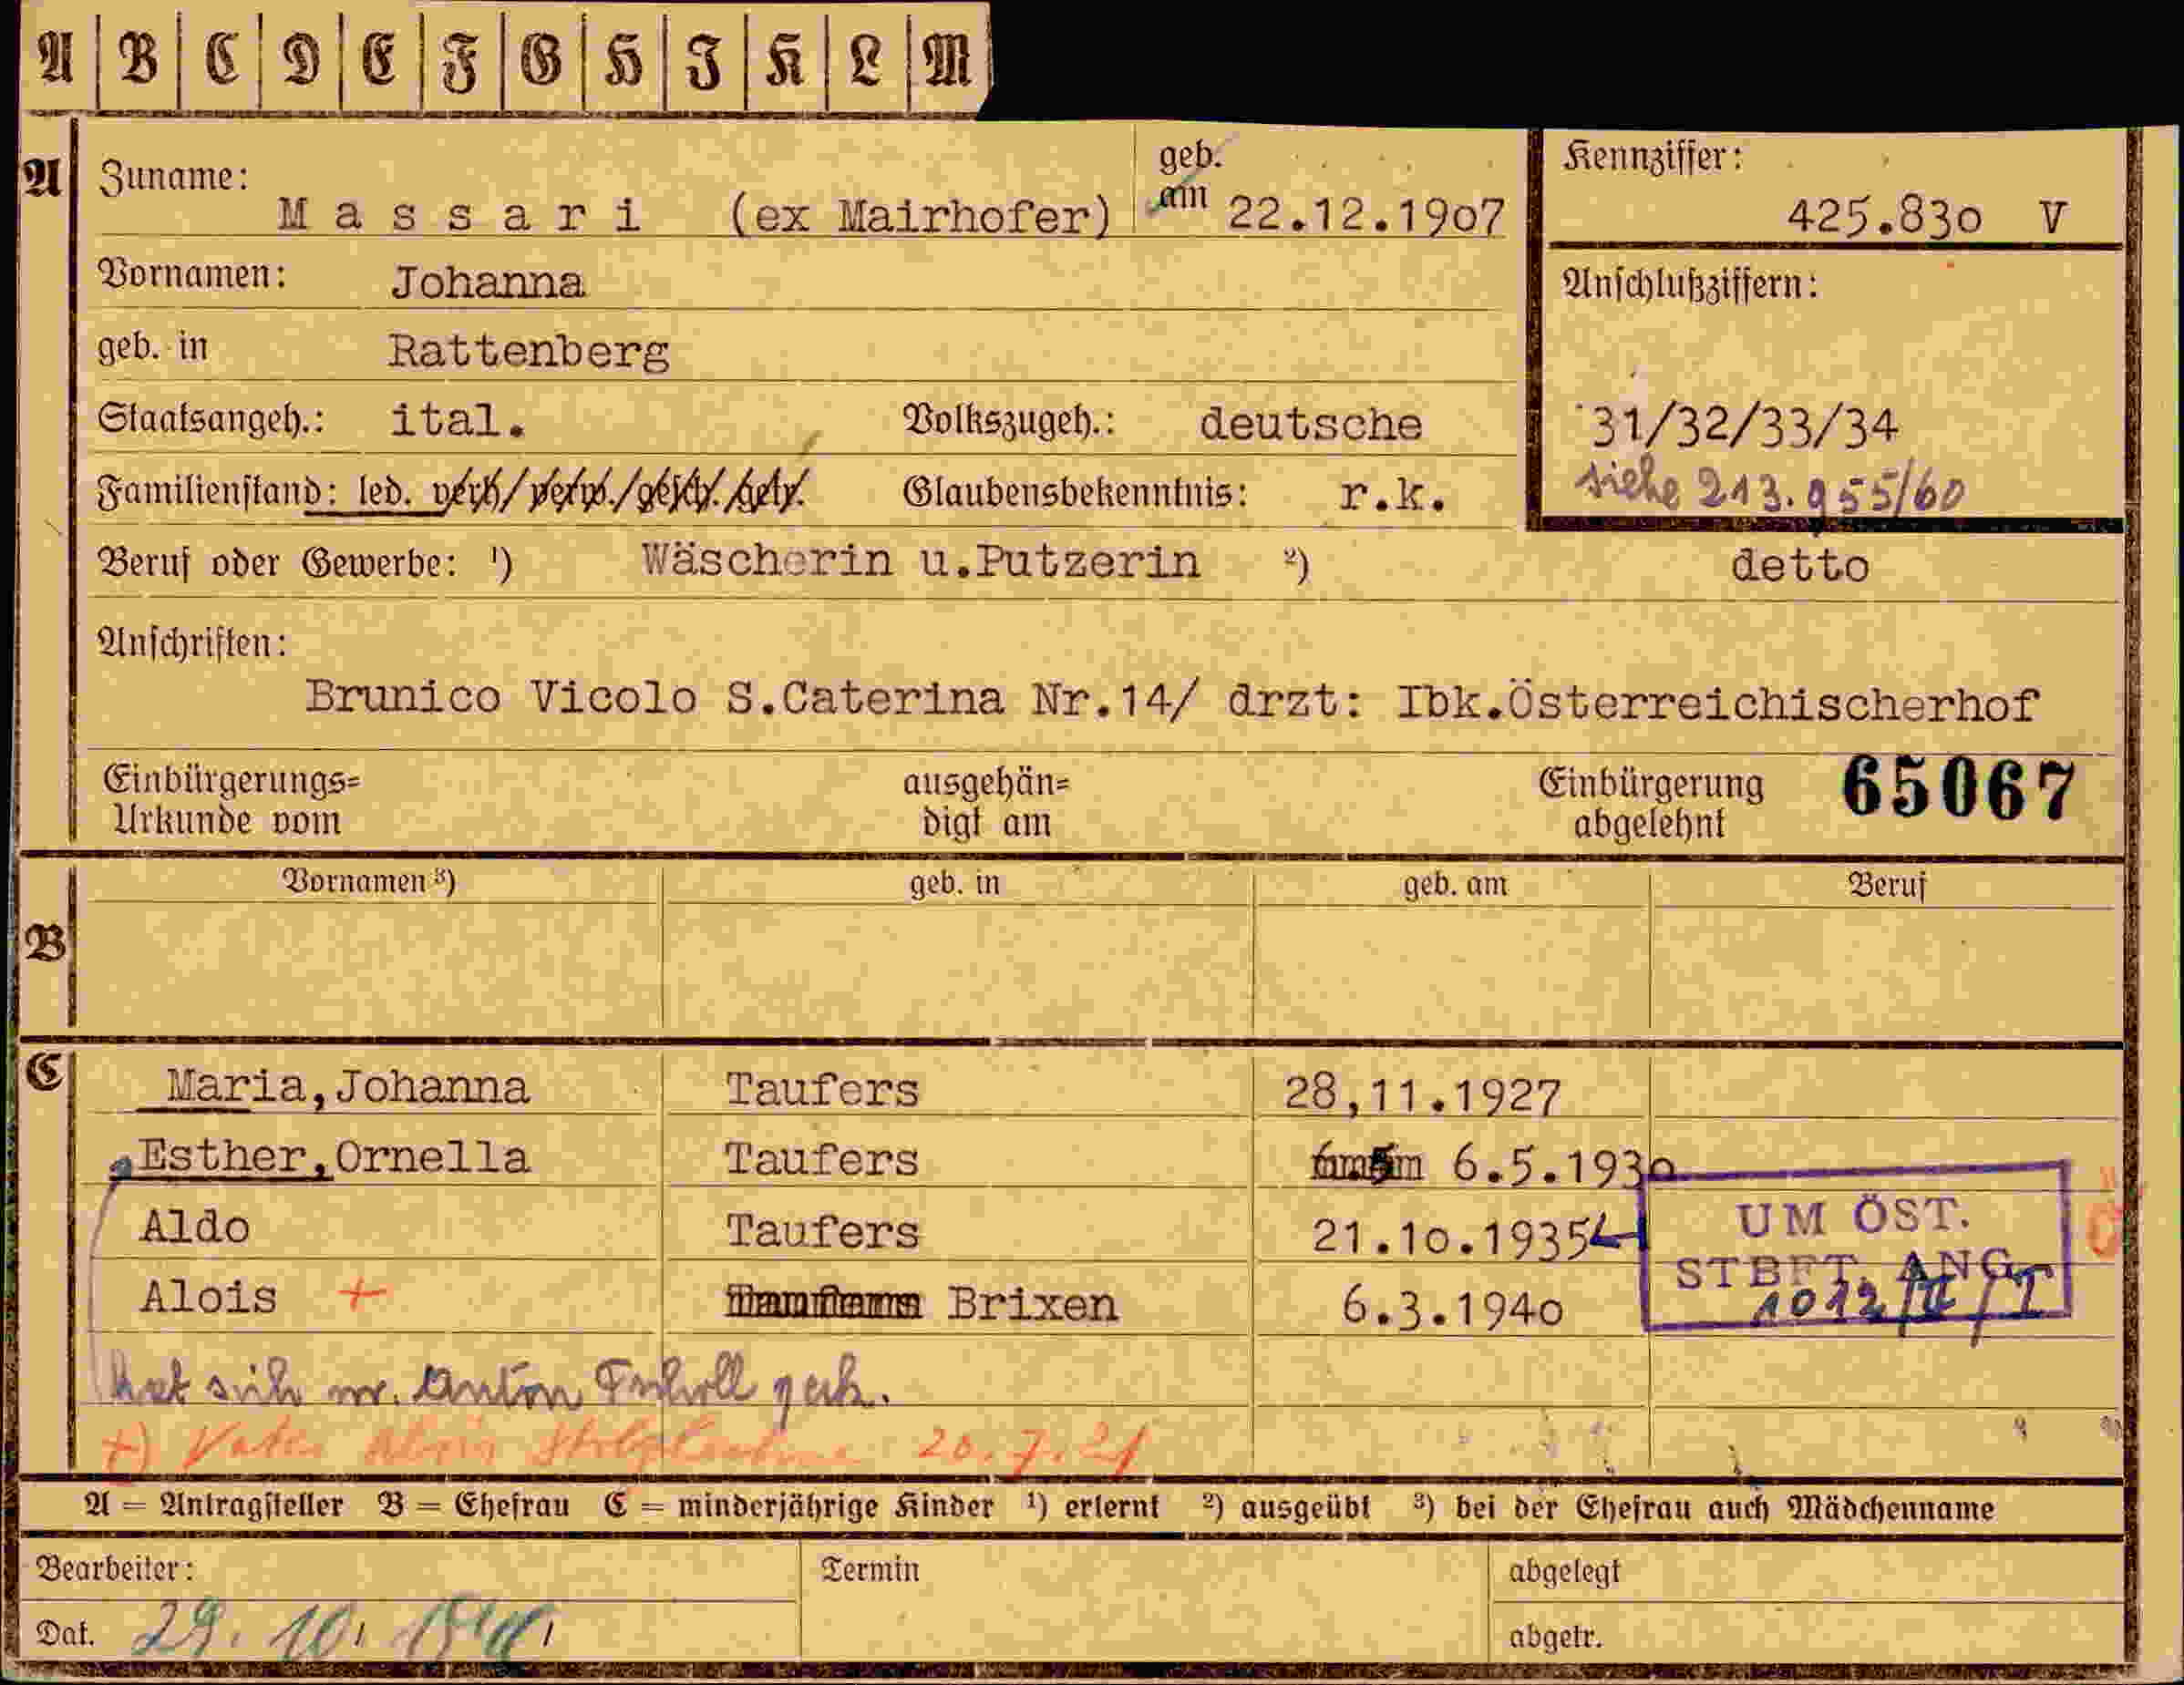 A B C D E F G H I K L M
A Zuname: Massari (ex Mairhofer) geb. am 22.12.1907
Kennziffer: 425.830 V
Vornamen: Johanna
Anschlußziffern:
geb. in Rattenberg
Staatsangeh.: ital. Volkszugeh.: deutsche
31/32/33/34
Familienstand: led. verh/verw./gesch./getr. Glaubensbekenntnis: r.k.
siehe 213.955/60
Beruf oder Gewerbe: ¹) Wäscherin u.Putzerin ²) detto
Anschriften:
Brunico Vicolo S.Caterina Nr.14/ drzt: Ibk.Österreichischerhof
Einbürgerungs=
Urkunde vom
ausgehän=
digt am
Einbürgerung
abgelehnt
65067
B Vornamen ³) geb. in geb. am Beruf
C Maria,Johanna Taufers 28,11.1927
Esther,Ornella Taufers 6.5.1930
Aldo Taufers 21.10.1935
Alois + Brixen 6.3.1940
UM ÖST.
STBFT. ANG.
1012/II/I
hat sich m. Anton
+) Vater Alois 20.7.21
A = Antragsteller B = Ehefrau C = minderjährige Kinder ¹) erlernt ²) ausgeübt ³) bei der Ehefrau auch Mädchenname
Bearbeiter: Termin abgelegt
Dat. 29. 10. abgetr.